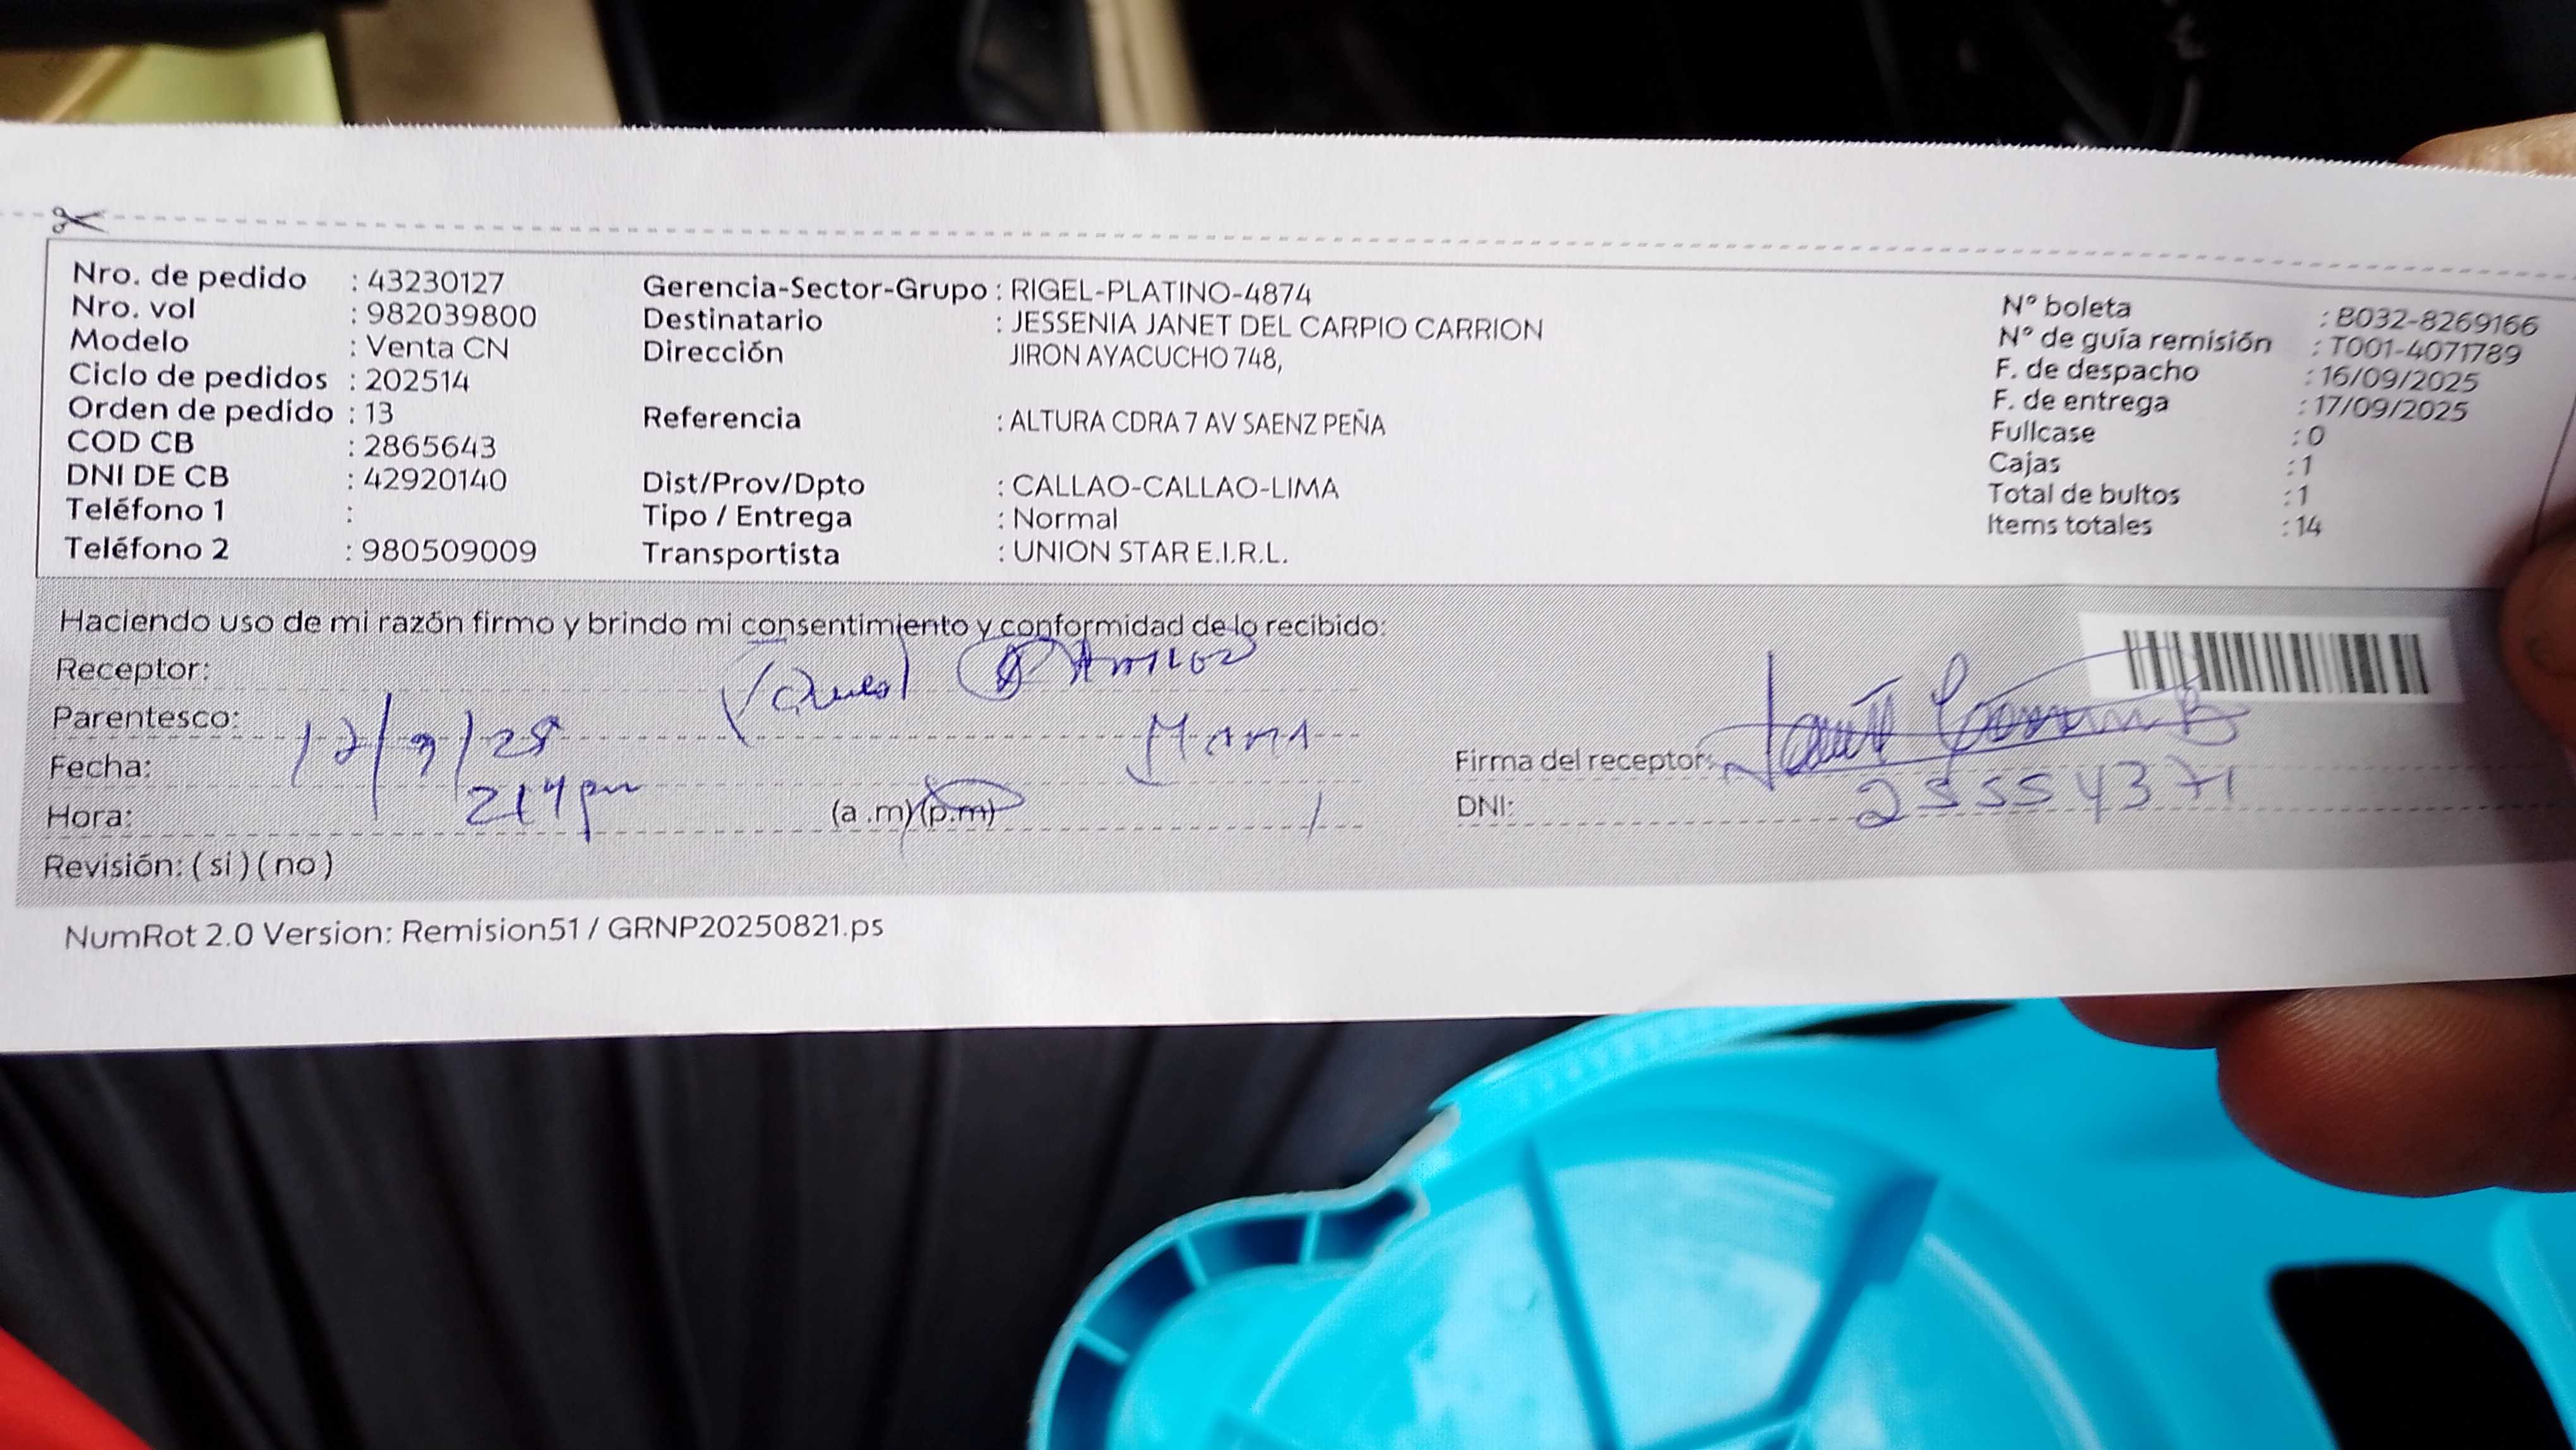 Nro. de pedido : 43230127
Nro. vol : 982039800
Modelo : Venta CN
Ciclo de pedidos : 202514
Orden de pedido : 13
COD CB : 2865643
DNI DE CB : 42920140
Teléfono 1 :
Teléfono 2 : 980509009
Gerencia-Sector-Grupo : RIGEL-PLATINO-4874
Destinatario : JESSENIA JANET DEL CARPIO CARRION
Dirección JIRON AYACUCHO 748,
Referencia : ALTURA CDRA 7 AV SAENZ PEÑA
Dist/Prov/Dpto : CALLAO-CALLAO-LIMA
Tipo / Entrega : Normal
Transportista : UNION STAR E.I.R.L.
N° boleta : B032-8269166
N° de guía remisión : T001-4071789
F. de despacho : 16/09/2025
F. de entrega : 17/09/2025
Fullcase : 0
Cajas : 1
Total de bultos : 1
Items totales : 14
Haciendo uso de mi razón firmo y brindo mi consentimiento y conformidad de lo recibido:
Receptor:
Parentesco: MAMA
Fecha: 17/9/25
Hora: 214 pm (a .m) (p.m)
Revisión: ( si ) ( no )
Firma del receptor:
DNI: 25554371
NumRot 2.0 Version: Remision51 / GRNP20250821.ps